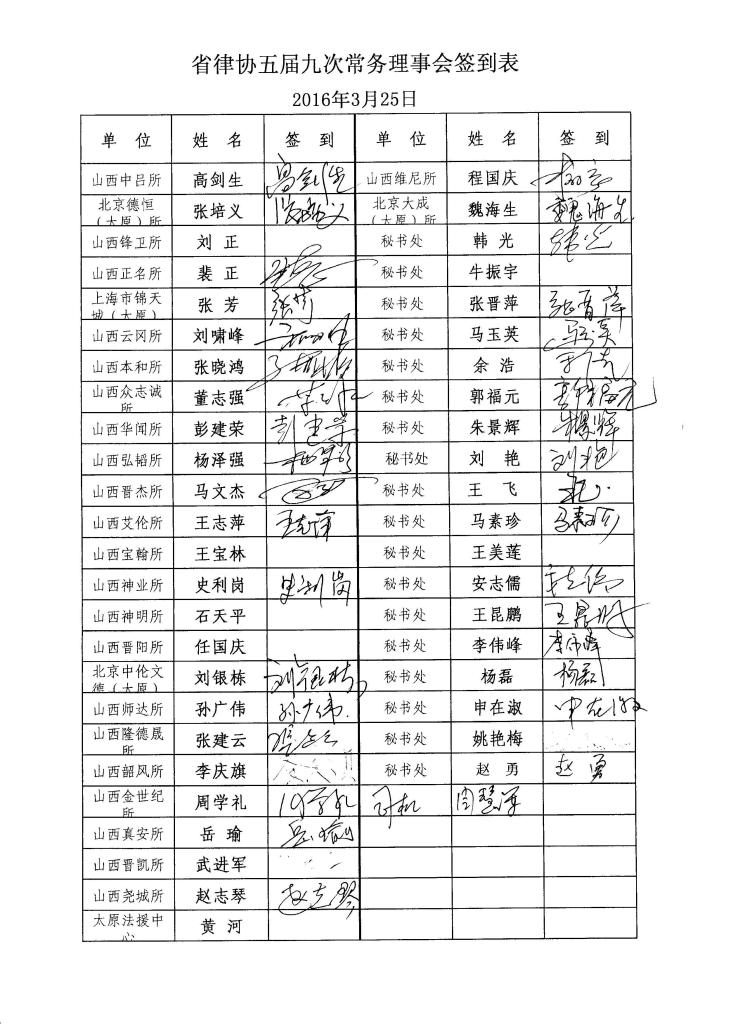 省律协五届九次常务理事会签到表
2016年3月25日
单 位 姓 名 签 到 单 位 姓 名 签 到
山西中吕所 高剑生 高剑生 山西维尼所 程国庆
北京德恒（太原）所 张培义 张培义 北京大成（太原）所 魏海生 魏海生
山西锋卫所 刘 正 秘书处 韩 光 韩光
山西正名所 裴 正 秘书处 牛振宇
上海市锦天城（太原） 张 芳 张芳 秘书处 张晋萍 张晋萍
山西云冈所 刘啸峰 秘书处 马玉英 马玉英
山西本和所 张晓鸿 秘书处 余 浩
山西众志诚所 董志强 秘书处 郭福元 郭福元
山西华闻所 彭建荣 彭建荣 秘书处 朱景辉 朱景辉
山西弘韬所 杨泽强 秘书处 刘 艳 刘艳
山西晋杰所 马文杰 秘书处 王 飞
山西艾伦所 王志萍 王志萍 秘书处 马素珍 马素珍
山西宝翰所 王宝林 秘书处 王美莲
山西神业所 史利岗 史利岗 秘书处 安志儒
山西神明所 石天平 秘书处 王昆鹏 王昆鹏
山西晋阳所 任国庆 秘书处 李伟峰 李伟峰
北京中伦文德（太原） 刘银栋 刘银栋 秘书处 杨磊 杨磊
山西师达所 孙广伟 孙广伟 秘书处 申在淑 申在淑
山西隆德晟所 张建云 张建云 秘书处 姚艳梅
山西韶风所 李庆旗 秘书处 赵 勇 赵勇
山西金世纪所 周学礼 周学礼 司机 闫慧军
山西真安所 岳 瑜 岳瑜
山西晋凯所 武进军
山西尧城所 赵志琴 赵志琴
太原法援中心 黄 河